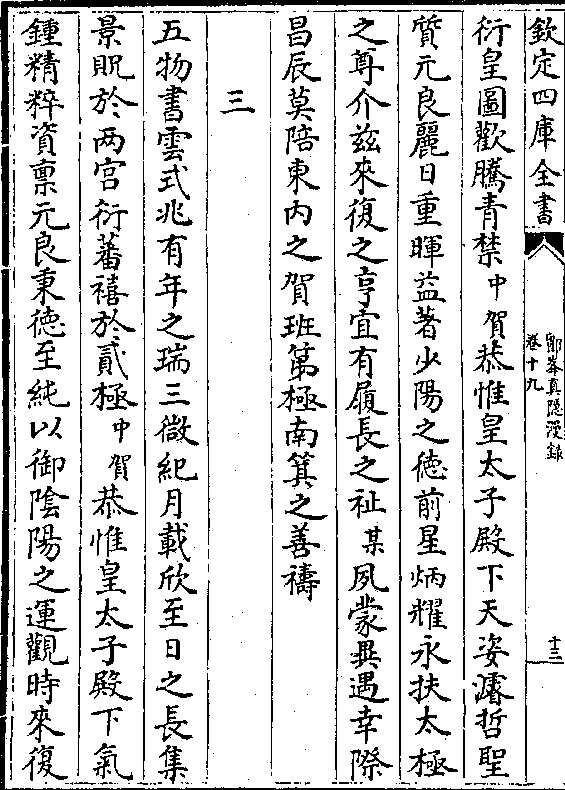 欽定四庫全書
鄮峯真隱漫録
卷十九
十三
衍皇圖歡騰青禁中賀恭惟皇太子殿下天姿濬哲聖
質元良麗日重暉益著少陽之徳前星炳耀永扶太極
之尊介兹來復之亨宜有履長之祉某夙蒙異遇幸際
昌辰莫陪東内之賀班第極南箕之善禱
三
五物書雲式兆有年之瑞三微紀月載欣至日之長集
景貺於两宫衍蕃禧於貳極中賀恭惟皇太子殿下氣
鍾精粹資禀元良秉徳至純以御隂陽之運觀時來復